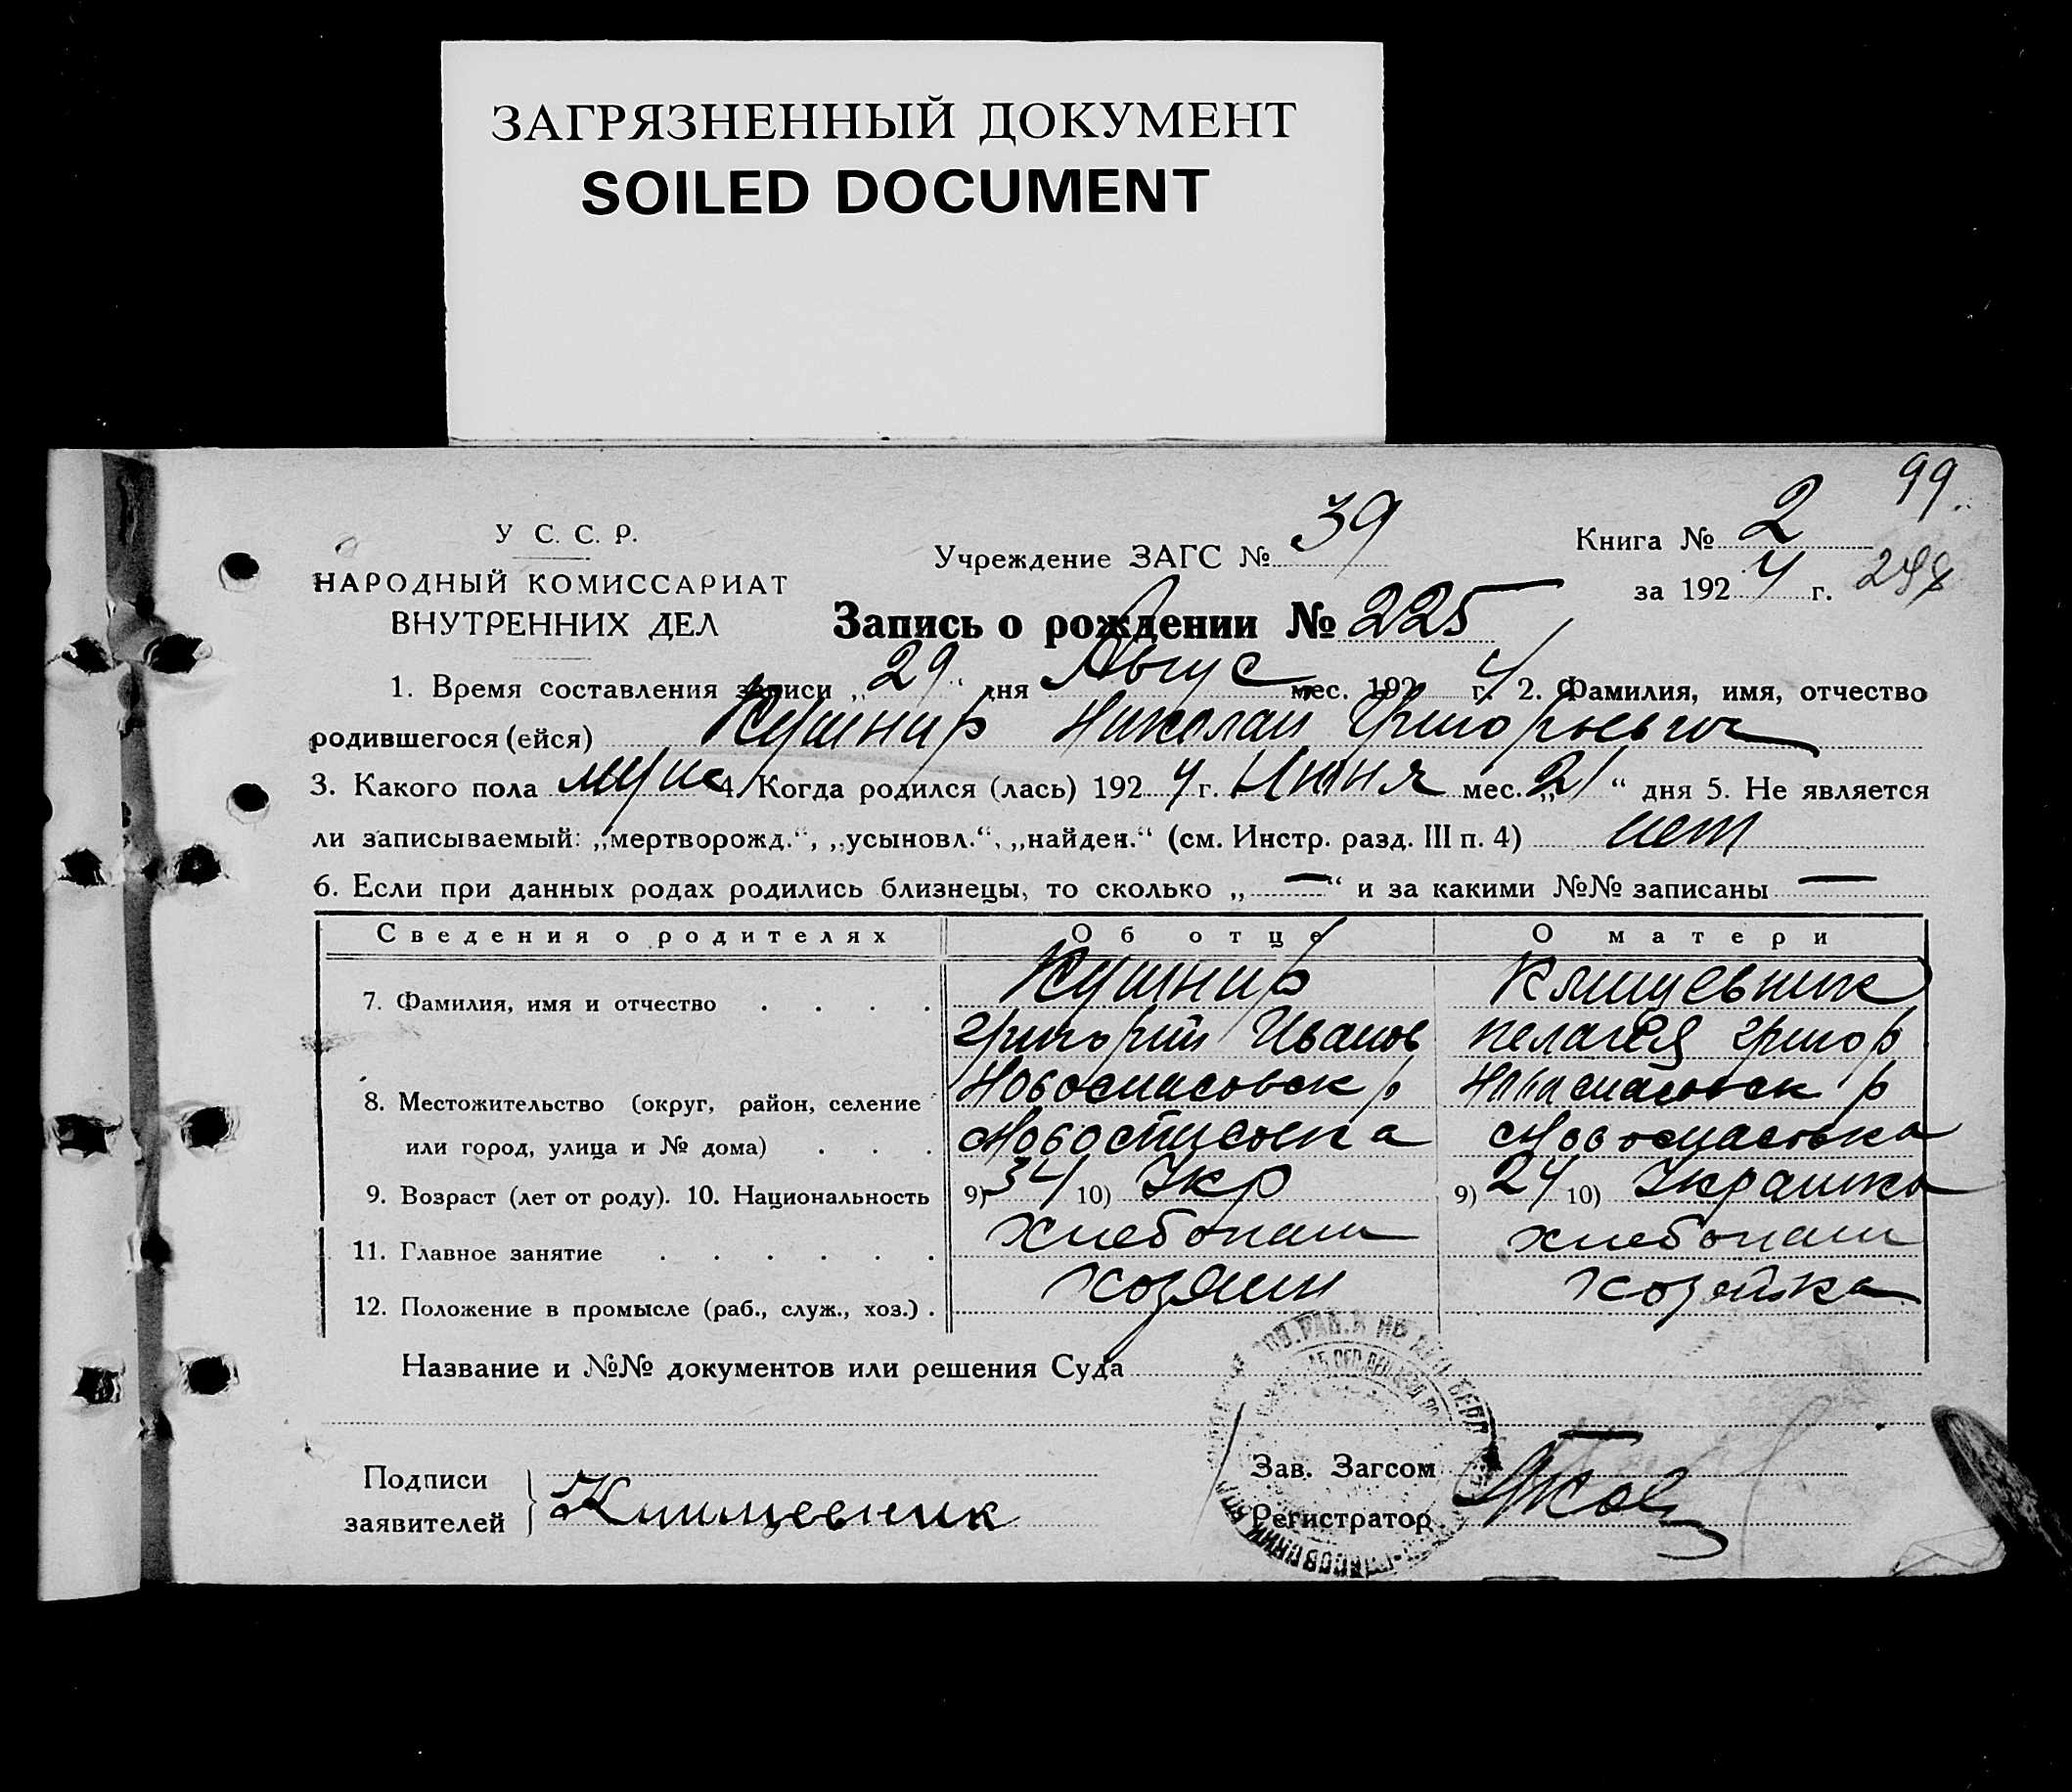 ЗАГРЯЗНЕННЫЙ ДОКУМЕНТ
SOILED DOCUMENT
99
У С. С. Р.
НАРОДНЫЙ КОМИССАРИАТ
ВНУТРЕННИХ ДЕЛ
Учреждение ЗАГС № 39
Книга № 2
за 1924 г.
Запись о рождении № 225
1. Время составления записи „29“ дня Авгус мес. 1924 г. 2. Фамилия, имя, отчество
родившегося (ейся) Кушнир Николай Григорьевич
3. Какого пола муж 4. Когда родился (лась) 1924 г. Июня мес. „21“ дня 5. Не является
ли записываемый: „мертворожд.“, „усыновл.“, „найден.“ (см. Инстр. разд. III п. 4) нет
6. Если при данных родах родились близнецы, то сколько „—“ и за какими №№ записаны —
Сведения о родителях Об отце О матери
7. Фамилия, имя и отчество . . . . Кушнир Клищевник
Григорий Иванов Пелагея Григор
8. Местожительство (округ, район, селение Новоспасовск р Новоспасовск р
или город, улица и № дома) . . . Новоспасовка Новоспасовка
9. Возраст (лет от роду). 10. Национальность 9) 34 10) Укр 9) 24 10) Украинка
11. Главное занятие . . . . . . хлебопаш хлебопаш
12. Положение в промысле (раб., служ., хоз.) . хозяин хозейка
Название и №№ документов или решения Суда
Подписи
заявителей } Клищевник
Зав. Загсом
Регистратор